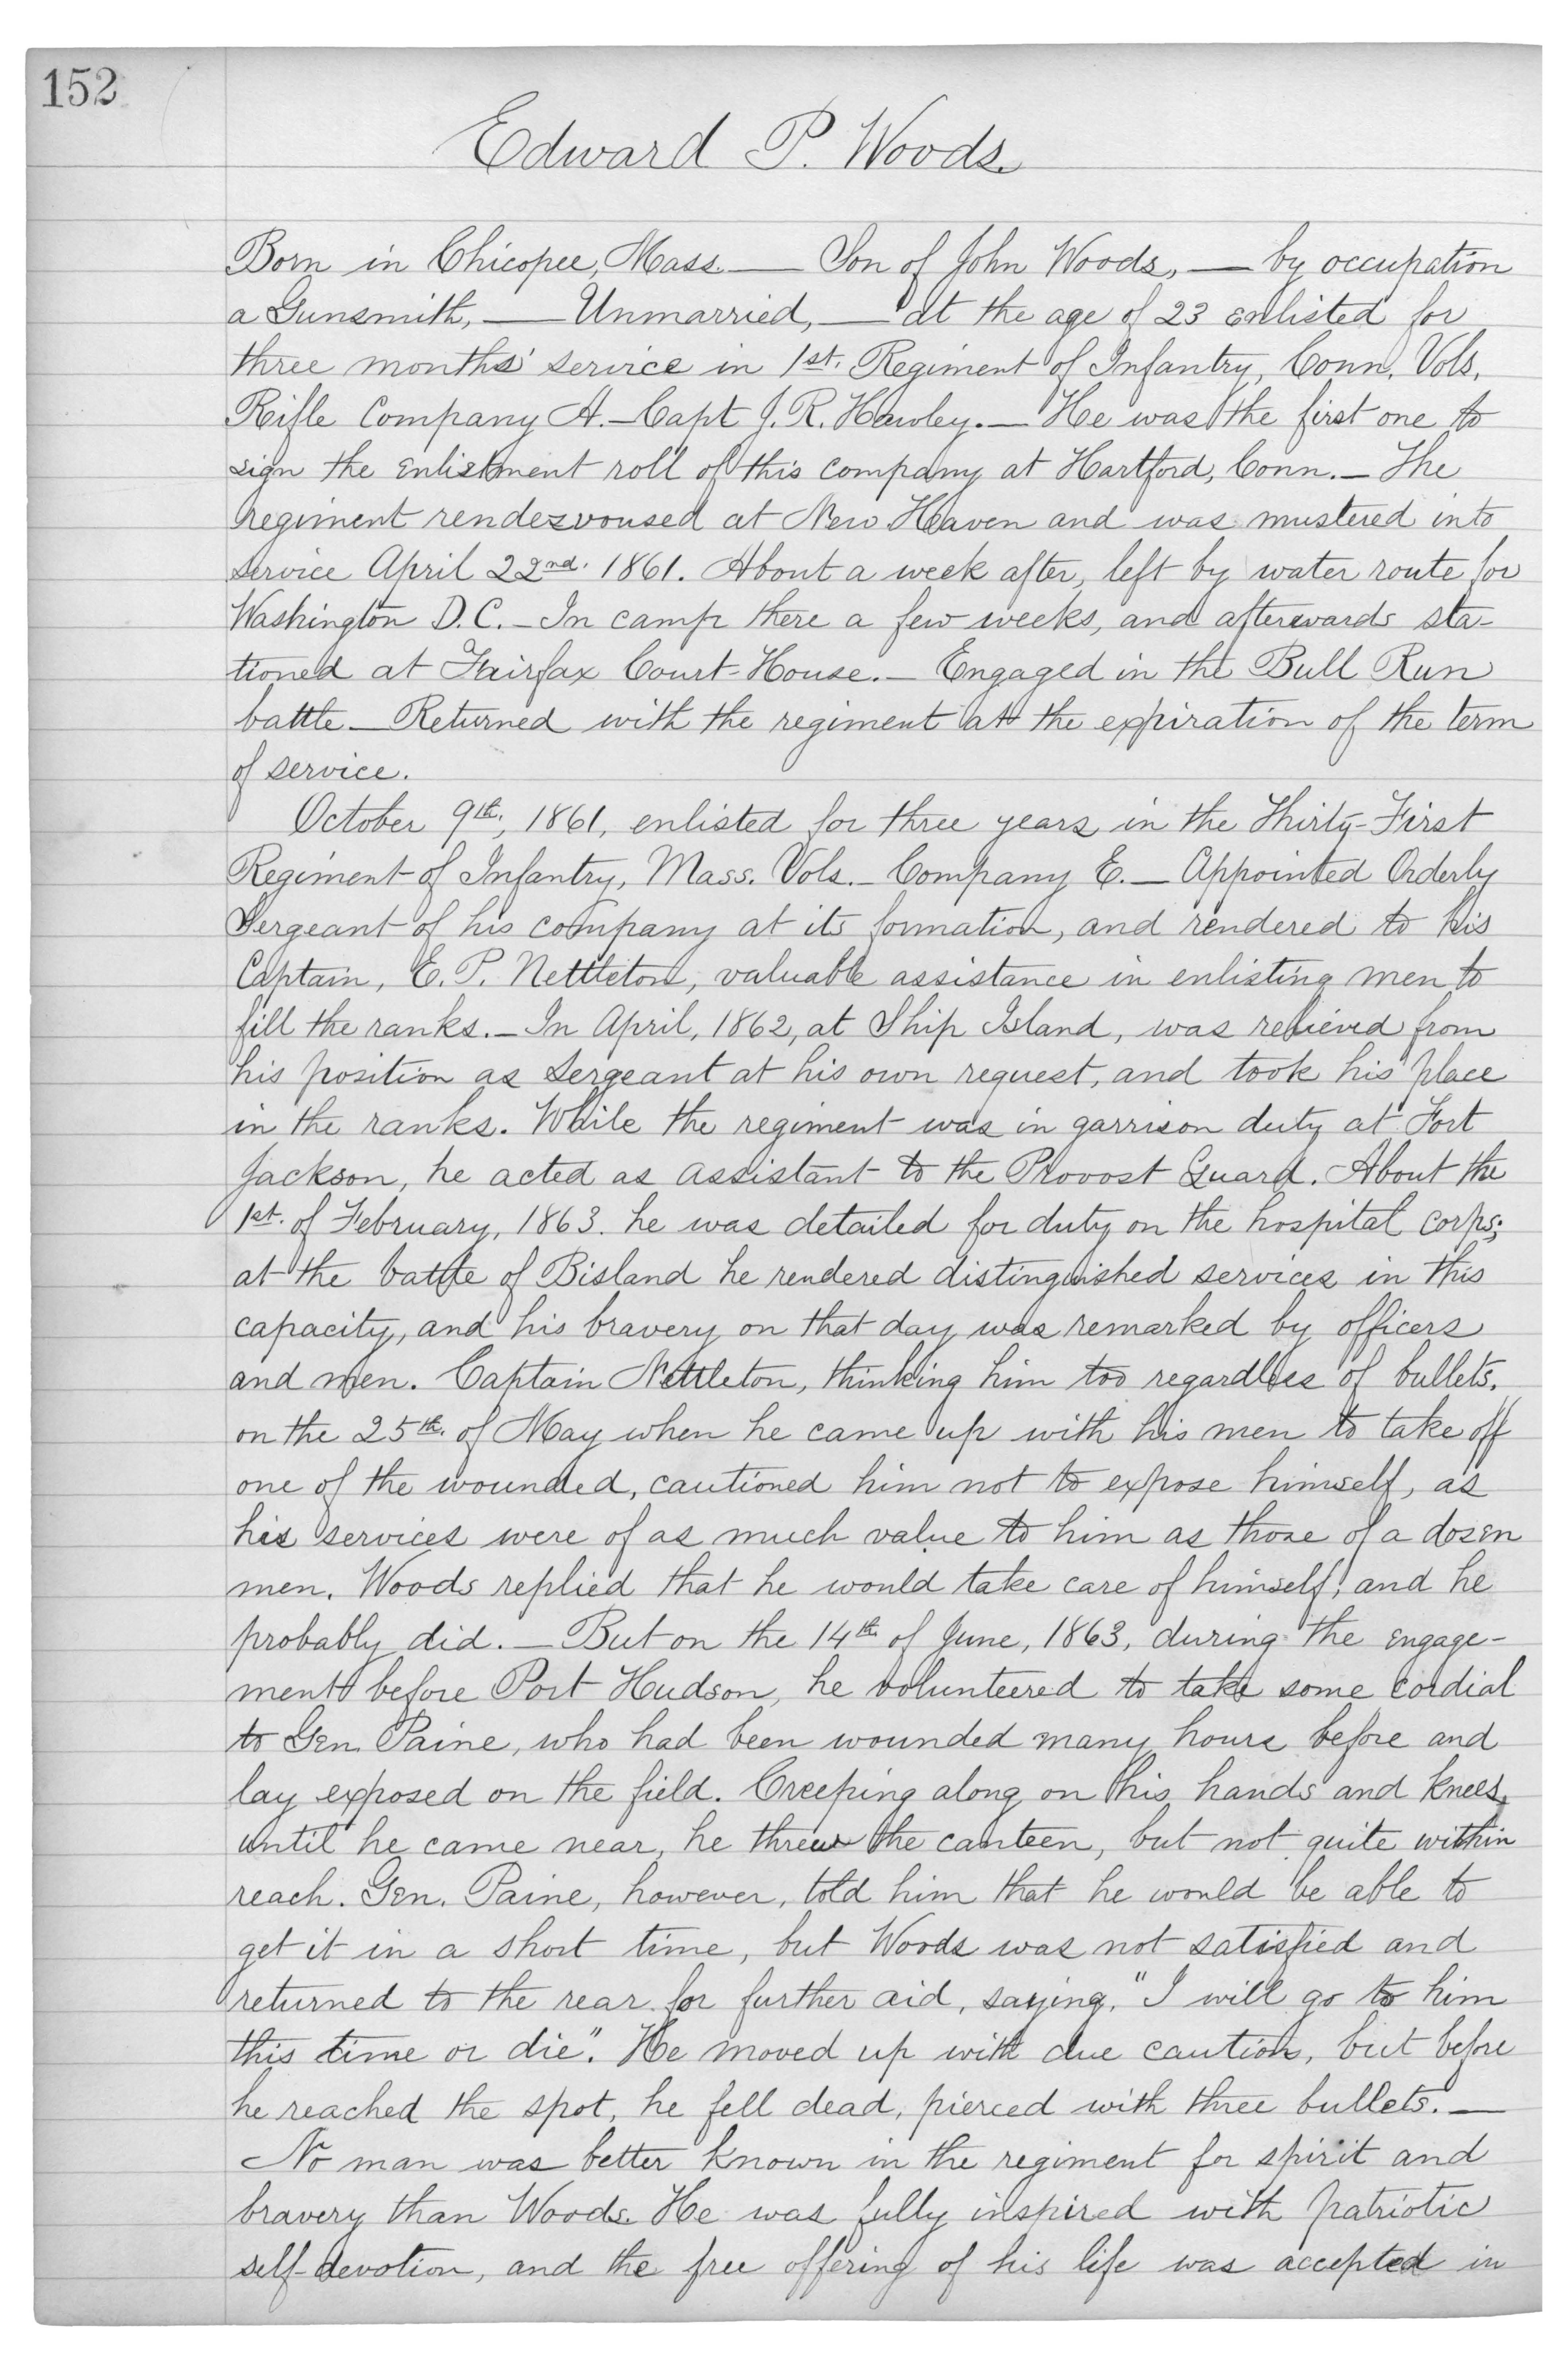 152
Edward P. Woods.
Born in Chicopee, Mass. — Son of John Woods, — by occupation
a Gunsmith, — Unmarried, — at the age of 23 enlisted for
three months' service in 1st. Regiment of Infantry, Conn. Vols.
Rifle Company A. — Capt J. R. Hawley. — He was the first one to
sign the enlistment roll of this company at Hartford, Conn. — The
regiment rendezvoused at New Haven and was mustered into
service April 22nd. 1861. About a week after, left by water route for
Washington D.C. — In camp there a few weeks, and afterwards sta-
tioned at Fairfax Court-House. — Engaged in the Bull Run
battle — Returned with the regiment at the expiration of the term
of service.
October 9th, 1861, enlisted for three years in the Thirty-First
Regiment of Infantry, Mass. Vols. — Company E. — Appointed Orderly
Sergeant of his company at its formation, and rendered to his
Captain, E. P. Nettleton, valuable assistance in enlisting men to
fill the ranks. — In April, 1862, at Ship Island, was relieved from
his position as Sergeant at his own request, and took his place
in the ranks. While the regiment was in garrison duty at Fort
Jackson, he acted as assistant to the Provost Guard. About the
1st. of February, 1863. he was detailed for duty on the hospital corps;
at the battle of Bisland he rendered distinguished services in this
capacity, and his bravery on that day was remarked by officers
and men. Captain Nettleton, thinking him too regardless of bullets,
on the 25th. of May when he came up with his men to take off
one of the wounded, cautioned him not to expose himself, as
his services were of as much value to him as those of a dozen
men. Woods replied that he would take care of himself, and he
probably did. — But on the 14th of June, 1863, during the engage-
ment before Port Hudson, he volunteered to take some cordial
to Gen. Paine, who had been wounded many hours before and
lay exposed on the field. Creeping along on his hands and knees,
until he came near, he threw the canteen, but not quite within
reach. Gen. Paine, however, told him that he would be able to
get it in a short time, but Woods was not satisfied and
returned to the rear for further aid, saying, "I will go to him
this time or die". He moved up with due caution, but before
he reached the spot, he fell dead, pierced with three bullets. —
No man was better known in the regiment for spirit and
bravery than Woods. He was fully inspired with patriotic
self-devotion, and the free offering of his life was accepted in